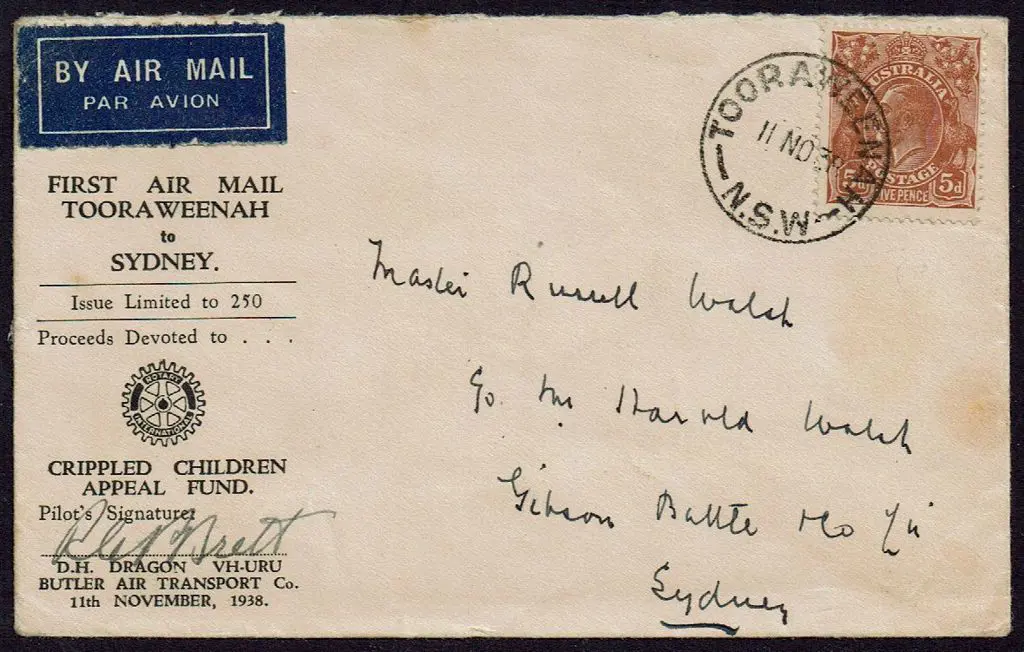 BY AIR MAIL
PAR AVION
FIRST AIR MAIL
TOORAWEENAH
to
SYDNEY.
Issue Limited to 250
Proceeds Devoted to . . .
ROTARY
INTERNATIONAL
CRIPPLED CHILDREN
APPEAL FUND.
Pilot's Signature:
D.H. DRAGON VH-URU
BUTLER AIR TRANSPORT Co.
11th NOVEMBER, 1938.
TOORAWEENAH
11 NO 38
N.S.W
AUSTRALIA
POSTAGE
5d 5d
FIVE PENCE
Master Russell Walsh
c/o Mr Harold Walsh
Gibson Battle & Co
Sydney